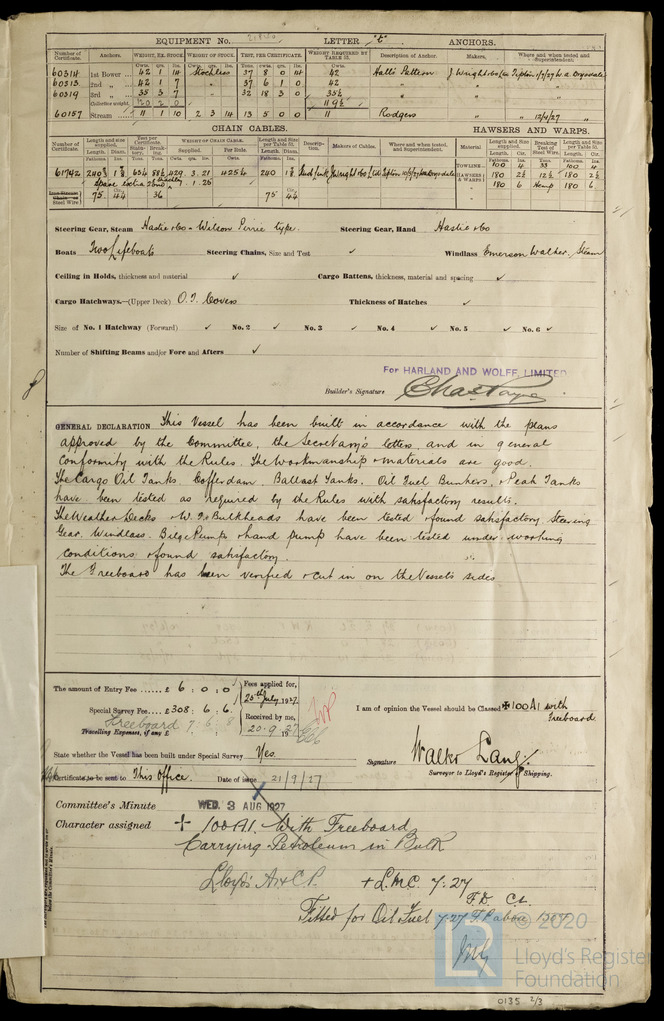 EQUIPMENT No. LETTER "t" ANCHORS.
Number of Certificate. Anchors. WEIGHT, EX. STOCK WEIGHT OF STOCK. TEST, PER CERTIFICATE. WEIGHT REQUIRED BY TABLE 53. Description of Anchor. Makers. Where and when tested and Superintendent:
Cwts. qrs. lbs. Cwts. qrs. lbs. Tons. cwts. qrs. lbs. Cwts.
60314 1st Bower 42 1 14 Stockless 37 8 0 14 42 Halls Pattern
60313 2nd " 42 1 7 37 6 1 0 42
60319 3rd " 35 3 7 32 18 3 0 35½
Collective weight. 120 2 0 119½
60157 Stream 11 1 10 2 3 14 13 5 0 0 11 Rodgers
CHAIN CABLES. HAWSERS AND WARPS.
Number of Certificate. Length and size supplied. Test per Certificate. WEIGHT OF CHAIN CABLE. Length and Size per Table 53. Description. Makers of Cables. Where and when tested, and Superintendent. Material Length and Size supplied. Breaking Test of Steel Wire. Length and Size per Table 53.
TOWLINE 100 4 33 100 4
HAWSERS & WARPS 180 2½ 12½ 180 2½
180 6 Hemp 180 6
Steel Wire 75 4¼ 36 75 4¼
Steering Gear, Steam Hastie & Co - Wilson Pirrie type. Steering Gear, Hand Hastie & Co
Boats Two Lifeboats Steering Chains, Size and Test ✓ Windlass Emerson Walker, Steam
Ceiling in Holds, thickness and material ✓ Cargo Battens, thickness, material and spacing ✓
Cargo Hatchways.—(Upper Deck) O.T. Covers Thickness of Hatches ✓
Size of No. 1 Hatchway (Forward) ✓ No. 2 ✓ No. 3 ✓ No. 4 ✓ No. 5 ✓ No. 6 ✓
Number of Shifting Beams and/or Fore and Afters ✓
For HARLAND AND WOLFF, LIMITED
Builder's Signature Chas Payne
GENERAL DECLARATION This Vessel has been built in accordance with the plans
approved by the Committee, the Secretary's letters, and in general
conformity with the Rules. The Workmanship & materials are good.
The Cargo Oil Tanks, Cofferdam, Ballast Tanks, Oil Fuel Bunkers, & Peak Tanks
have been tested as required by the Rules with satisfactory results.
The Weather Decks & W.T. Bulkheads have been tested & found satisfactory. Steering
Gear, Windlass, Bilge Pumps & hand pump have been tested under working
conditions & found satisfactory.
The Freeboard has been verified & cut in on the Vessel's sides
The amount of Entry Fee £ 6 : 0 : 0 Fees applied for,
20th July 1927
Special Survey Fee £ 308 : 6 : 6 Received by me,
Freeboard 7 : 6 : 8
Travelling Expenses, if any £ 20.9.1927
I am of opinion the Vessel should be Classed ✠100A1 with
Freeboard
State whether the Vessel has been built under Special Survey Yes.
Signature Walter Lang
Surveyor to Lloyd's Register of Shipping.
Certificate to be sent to This Office. Date of issue 21/9/27
Committee's Minute WED. 3 AUG 1927
Character assigned + 100A1. With Freeboard
Carrying Petroleum in Bulk
Lloyd's A & C.P. + L.M.C. 7.27
F.D. CL
Fitted for Oil Fuel 7.27 F.P. above 150°F
© 2020
LR Lloyd's Register
Foundation
0135 2/3